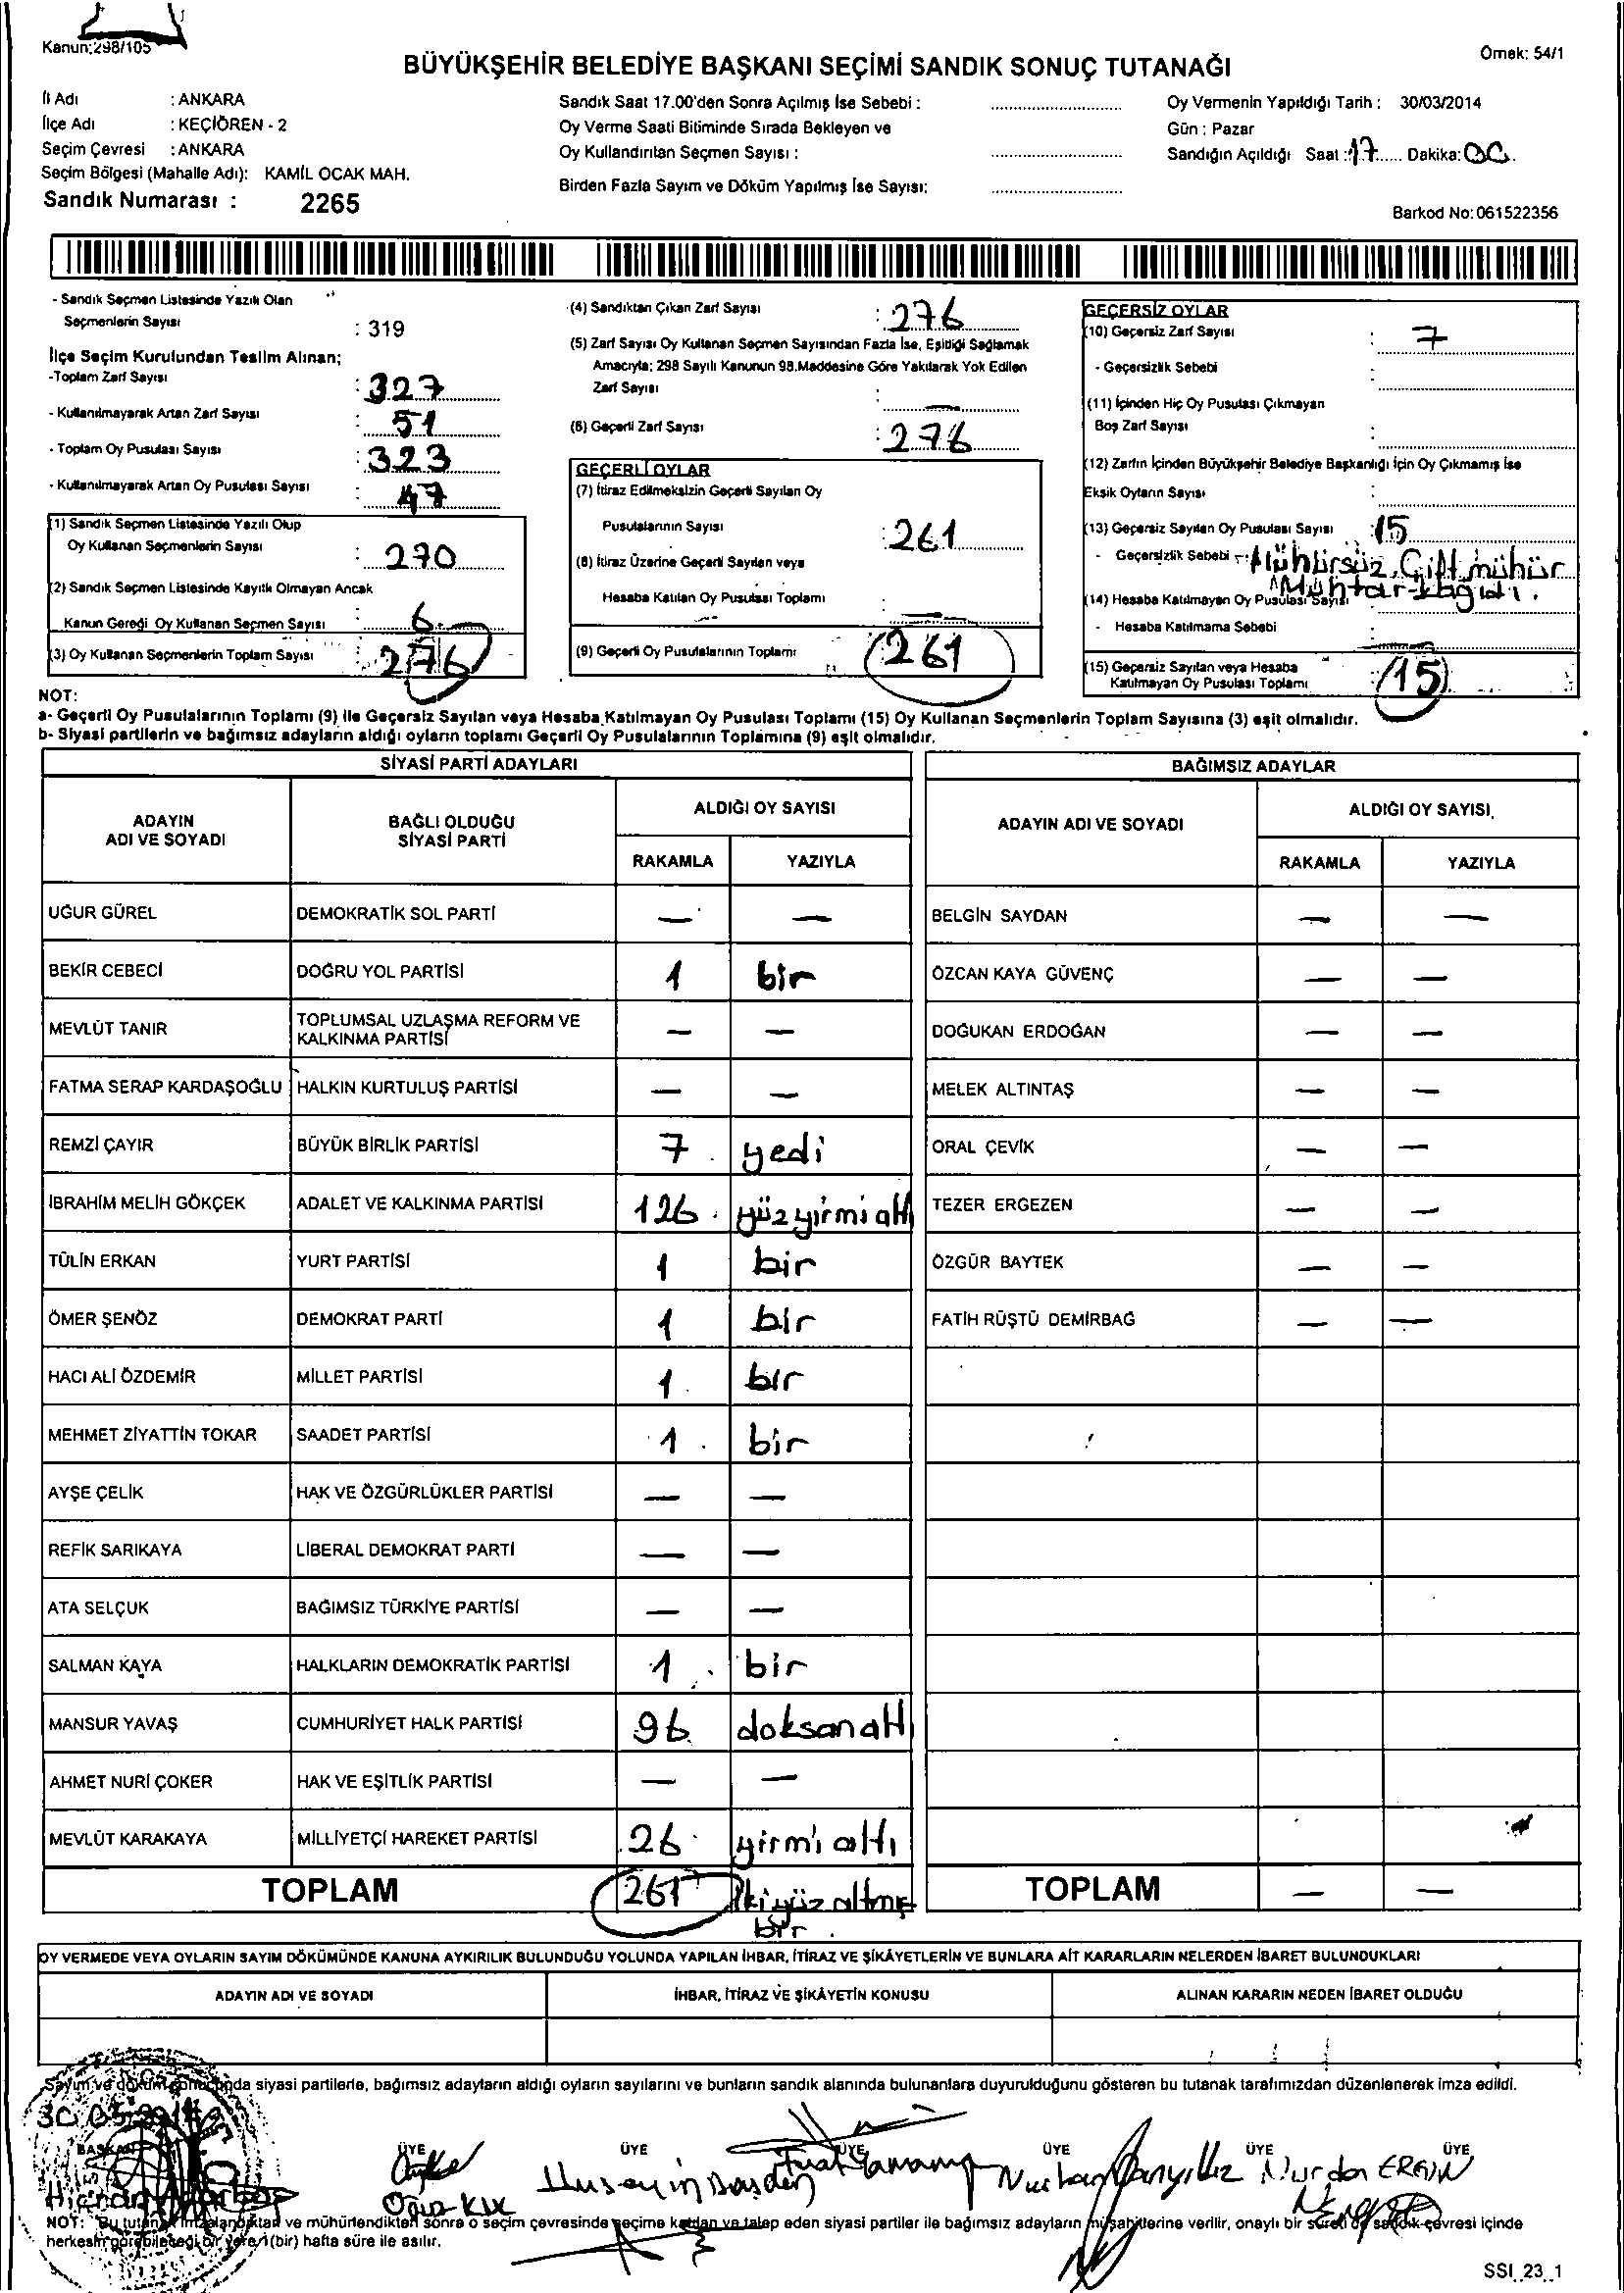 Kanun:298/105
Örnek: 54/1
BÜYÜKŞEHİR BELEDİYE BAŞKANI SEÇİMİ SANDIK SONUÇ TUTANAĞI
İl Adı : ANKARA
İlçe Adı : KEÇİÖREN - 2
Seçim Çevresi : ANKARA
Seçim Bölgesi (Mahalle Adı): KAMİL OCAK MAH.
Sandık Numarası : 2265
Sandık Saat 17.00'den Sonra Açılmış İse Sebebi :
Oy Verme Saati Bitiminde Sırada Bekleyen ve
Oy Kullandırılan Seçmen Sayısı :
Birden Fazla Sayım ve Döküm Yapılmış İse Sayısı:
Oy Vermenin Yapıldığı Tarih : 30/03/2014
Gün : Pazar
Sandığın Açıldığı Saat : 17 Dakika: 00
Barkod No: 061522356
- Sandık Seçmen Listesinde Yazılı Olan
Seçmenlerin Sayısı : 319
İlçe Seçim Kurulundan Teslim Alınan;
-Toplam Zarf Sayısı : 327
- Kullanılmayarak Artan Zarf Sayısı : 51
- Toplam Oy Pusulası Sayısı : 323
- Kullanılmayarak Artan Oy Pusulası Sayısı : 47
(1) Sandık Seçmen Listesinde Yazılı Olup
Oy Kullanan Seçmenlerin Sayısı : 270
(2) Sandık Seçmen Listesinde Kayıtlı Olmayan Ancak
Kanun Gereği Oy Kullanan Seçmen Sayısı : 6
(3) Oy Kullanan Seçmenlerin Toplam Sayısı : 276
(4) Sandıktan Çıkan Zarf Sayısı : 276
(5) Zarf Sayısı Oy Kullanan Seçmen Sayısından Fazla İse, Eşitliği Sağlamak
Amacıyla; 298 Sayılı Kanunun 98.Maddesine Göre Yakılarak Yok Edilen
Zarf Sayısı : —
(6) Geçerli Zarf Sayısı : 276
GEÇERLİ OYLAR
(7) İtiraz Edilmeksizin Geçerli Sayılan Oy
Pusulalarının Sayısı : 261
(8) İtiraz Üzerine Geçerli Sayılan veya
Hesaba Katılan Oy Pusulası Toplamı : —
(9) Geçerli Oy Pusulalarının Toplamı : 261
GEÇERSİZ OYLAR
(10) Geçersiz Zarf Sayısı : 7
- Geçersizlik Sebebi :
(11) İçinden Hiç Oy Pusulası Çıkmayan
Boş Zarf Sayısı :
(12) Zarfın İçinden Büyükşehir Belediye Başkanlığı İçin Oy Çıkmamış İse
Eksik Oyların Sayısı :
(13) Geçersiz Sayılan Oy Pusulası Sayısı : 15
- Geçersizlik Sebebi : Mühürsüz, Çift mühür
Muhtar kağıdı.
(14) Hesaba Katılmayan Oy Pusulası Sayısı
- Hesaba Katılmama Sebebi :
(15) Geçersiz Sayılan veya Hesaba
Katılmayan Oy Pusulası Toplamı : 15
NOT:
a- Geçerli Oy Pusulalarının Toplamı (9) ile Geçersiz Sayılan veya Hesaba Katılmayan Oy Pusulası Toplamı (15) Oy Kullanan Seçmenlerin Toplam Sayısına (3) eşit olmalıdır.
b- Siyasi partilerin ve bağımsız adayların aldığı oyların toplamı Geçerli Oy Pusulalarının Toplamına (9) eşit olmalıdır.
SİYASİ PARTİ ADAYLARI
ADAYIN ADI VE SOYADI BAĞLI OLDUĞU SİYASİ PARTİ ALDIĞI OY SAYISI
RAKAMLA YAZIYLA
UĞUR GÜREL DEMOKRATİK SOL PARTİ — —
BEKİR CEBECİ DOĞRU YOL PARTİSİ 1 bir
MEVLÜT TANIR TOPLUMSAL UZLAŞMA REFORM VE KALKINMA PARTİSİ — —
FATMA SERAP KARDAŞOĞLU HALKIN KURTULUŞ PARTİSİ — —
REMZİ ÇAYIR BÜYÜK BİRLİK PARTİSİ 7 yedi
İBRAHİM MELİH GÖKÇEK ADALET VE KALKINMA PARTİSİ 126 yüz yirmi altı
TÜLİN ERKAN YURT PARTİSİ 1 bir
ÖMER ŞENÖZ DEMOKRAT PARTİ 1 bir
HACI ALİ ÖZDEMİR MİLLET PARTİSİ 1 bir
MEHMET ZİYATTİN TOKAR SAADET PARTİSİ 1 bir
AYŞE ÇELİK HAK VE ÖZGÜRLÜKLER PARTİSİ — —
REFİK SARIKAYA LİBERAL DEMOKRAT PARTİ — —
ATA SELÇUK BAĞIMSIZ TÜRKİYE PARTİSİ — —
SALMAN KAYA HALKLARIN DEMOKRATİK PARTİSİ 1 bir
MANSUR YAVAŞ CUMHURİYET HALK PARTİSİ 96 doksan altı
AHMET NURİ ÇOKER HAK VE EŞİTLİK PARTİSİ — —
MEVLÜT KARAKAYA MİLLİYETÇİ HAREKET PARTİSİ 26 yirmi altı
TOPLAM 261 ikiyüz altmış bir
BAĞIMSIZ ADAYLAR
ADAYIN ADI VE SOYADI ALDIĞI OY SAYISI
RAKAMLA YAZIYLA
BELGİN SAYDAN — —
ÖZCAN KAYA GÜVENÇ — —
DOĞUKAN ERDOĞAN — —
MELEK ALTINTAŞ — —
ORAL ÇEVİK — —
TEZER ERGEZEN — —
ÖZGÜR BAYTEK — —
FATİH RÜŞTÜ DEMİRBAĞ — —
TOPLAM — —
OY VERMEDE VEYA OYLARIN SAYIM DÖKÜMÜNDE KANUNA AYKIRILIK BULUNDUĞU YOLUNDA YAPILAN İHBAR, İTİRAZ VE ŞİKÂYETLERİN VE BUNLARA AİT KARARLARIN NELERDEN İBARET BULUNDUKLARI
ADAYIN ADI VE SOYADI İHBAR, İTİRAZ VE ŞİKÂYETİN KONUSU ALINAN KARARIN NEDEN İBARET OLDUĞU
Sayım ve döküm sonucunda siyasi partilerle, bağımsız adayların aldığı oyların sayılarını ve bunların sandık alanında bulunanlara duyurulduğunu gösteren bu tutanak tarafımızdan düzenlenerek imza edildi.
BAŞKAN ÜYE ÜYE ÜYE ÜYE ÜYE ÜYE
Nurdan ERGİN
NOT: Bu tutanak imzalandıktan ve mühürlendikten sonra o seçim çevresinde seçime katılan ve talep eden siyasi partiler ile bağımsız adayların müşahitlerine verilir, onaylı bir sureti de sandık çevresi içinde
herkesin görebileceği bir yere 1(bir) hafta süre ile asılır.
SSI_23_1